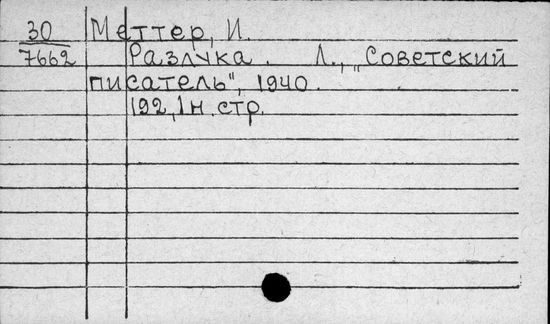 30 Меттер, И.
7662 Разлука. Л., „Советский
писатель", 1940.
192, 1 н. стр.